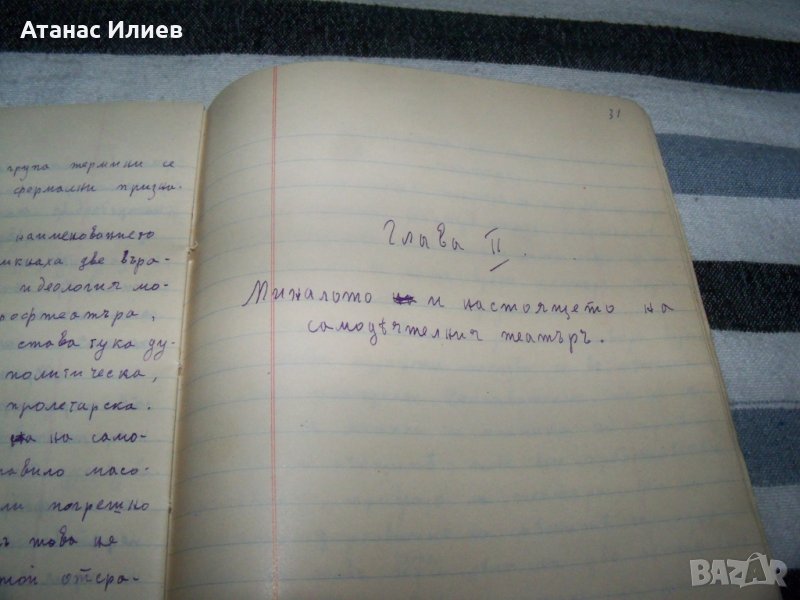 Атанас Илиев
група термини се
формални призна-
наименованието
две вѣра-
идеология мо-
профтеатъра,
става тука ду-
политическа,
пролетарска.
на само-
масо-
погрешно
това не
31
Глава II.
Миналото и настоящето на
самодѣятелния театъръ.
BAZAR
bg